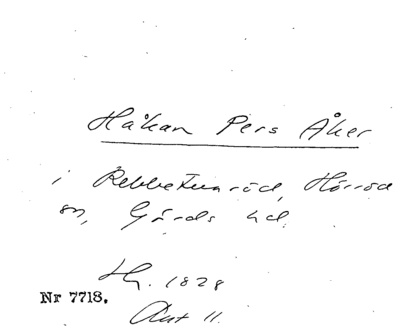 Håkan Pers Åker
i Rebbetuaröd, Hörröd
sn, Gärds hd.
Hg. 1828
Nr 7718.
Aut 11.